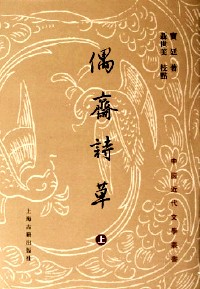 寶廷 著
聶世美 校點
中國近代文學叢書
偶齋詩草
上
上海古籍出版社